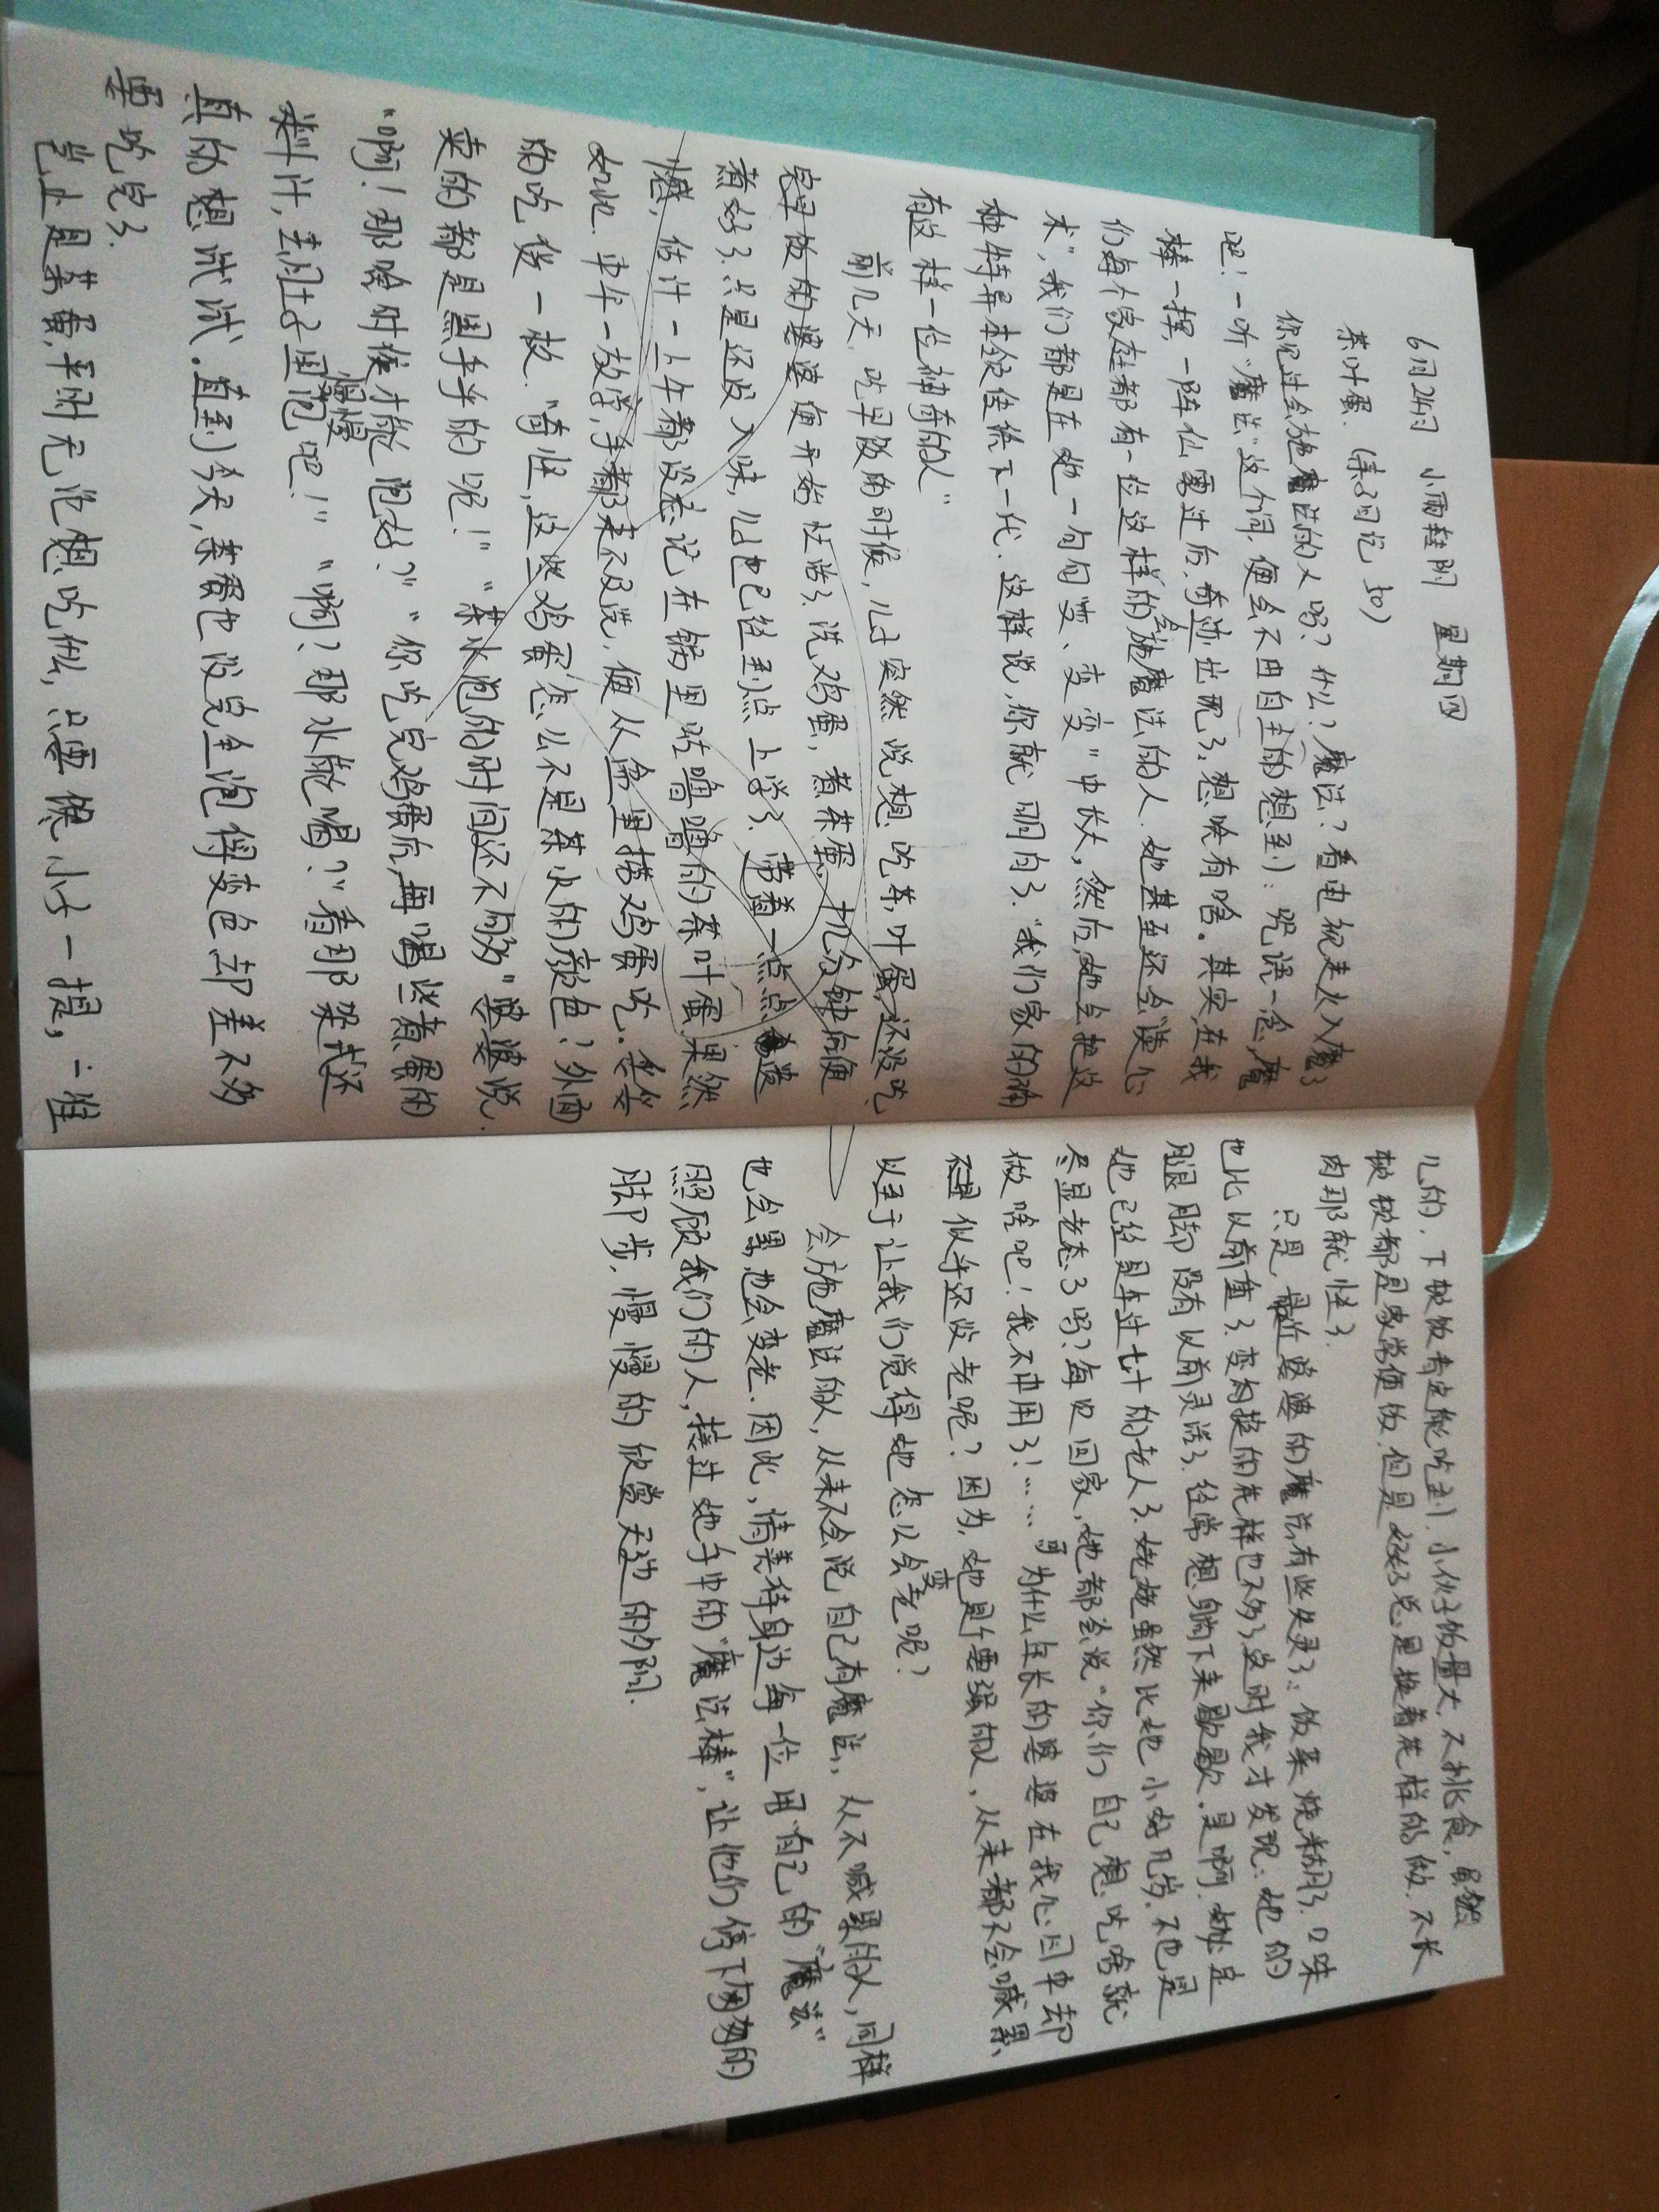 6月24日 小雨转阴 星期四
茶叶蛋 (亲子日记 30)
你见过会施魔法的人吗?什么?魔法?看电视走火入魔了
吧!一听“魔法”这个词,便会不由自主的想到:咒语一念,魔
棒一挥,一阵仙雾过后,奇迹出现了,想啥有啥。其实,在我
们每个家庭都有一位这样的会施魔法的人.她甚至还会“读心
术”,我们都是在她一句句“变、变、变”中长大,然后,她会把这
种特异本领传给下一代.这样说,你就明白了.“我们家的确
有这样一位神奇的人”
前几天.吃早饭的时候,儿子突然说想吃茶叶蛋,还没吃
完早饭的婆婆便开始忙活了.洗鸡蛋,煮茶蛋,十几分钟后便
煮好了.只是还没入味,儿子也已经到点上学了.带着一点点遗
憾,估计一上午都没忘记在锅里咕噜噜的茶叶蛋.果然
如此.中午一放学,手都来不及洗,便从盆里捞鸡蛋吃.
的吃后一枚.“奇怪,这些鸡蛋怎么不是茶水的颜色?外面
卖的都是黑乎乎的呢!”“茶水泡的时间还不够”婆婆说.
“啊!那啥时候才能泡好?”“你吃完鸡蛋后,再喝些煮蛋的
茶叶汁,去肚子里慢慢泡吧!”“啊?那水能喝?”看那架式还
真的想试试.直到今天,茶蛋也没完全泡得变色却差不多
要吃完了.
岂止是茶蛋,平时无论想吃什么,只要傻小子一提,一准
儿的.下顿饭肯定能吃到.小伙子饭量大,不挑食,虽然
顿顿都是家常便饭.但是婆婆总是换着花样的做.不长
肉那就怪了.
只是,最近婆婆的魔法有些失灵了:饭菜烧糊了.口味
也比以前重了.变相换的花样也不多了.这时我才发现:她的
腿脚没有以前灵活了.经常想躺下来歇歇.是啊.她
她已经是年过七十的老人了.姥姥虽然比她小好几岁.不也是
尽显老态了吗?每回回家,她都会说“你们自己想吃啥就
做啥吧!我不中用了!……可为什么年长的婆婆在我心目中却
似乎还没老呢?因为,她是个要强的人,从来都不会喊累、
以至于让我们觉得她怎么会变老呢?
会施魔法的人,从来不会说自己有魔法,从不喊累的人,同样
也会累,也会变老.因此,请善待身边每一位用自己的“魔法”
照顾我们的人,接过她手中的“魔法棒”,让他们停下匆匆的
脚步,慢慢的欣赏天边的夕阳.